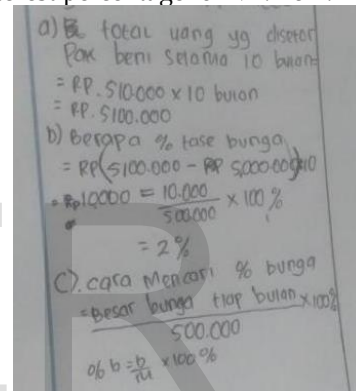 a) total uang yg disetor
Pak beni selama 10 bulan
= RP. 510.000 x 10 bulan
= RP. 5100.000
b) Berapa % tase bunga
= RP(5100.000 - RP 5.000.000):10
= Rp10000 = 10.000 / 500.000 x 100 %
= 2 %
C). cara mencari % bunga
= Besar bunga tiap bulan x 100%
500.000
% b = b/m x 100 %